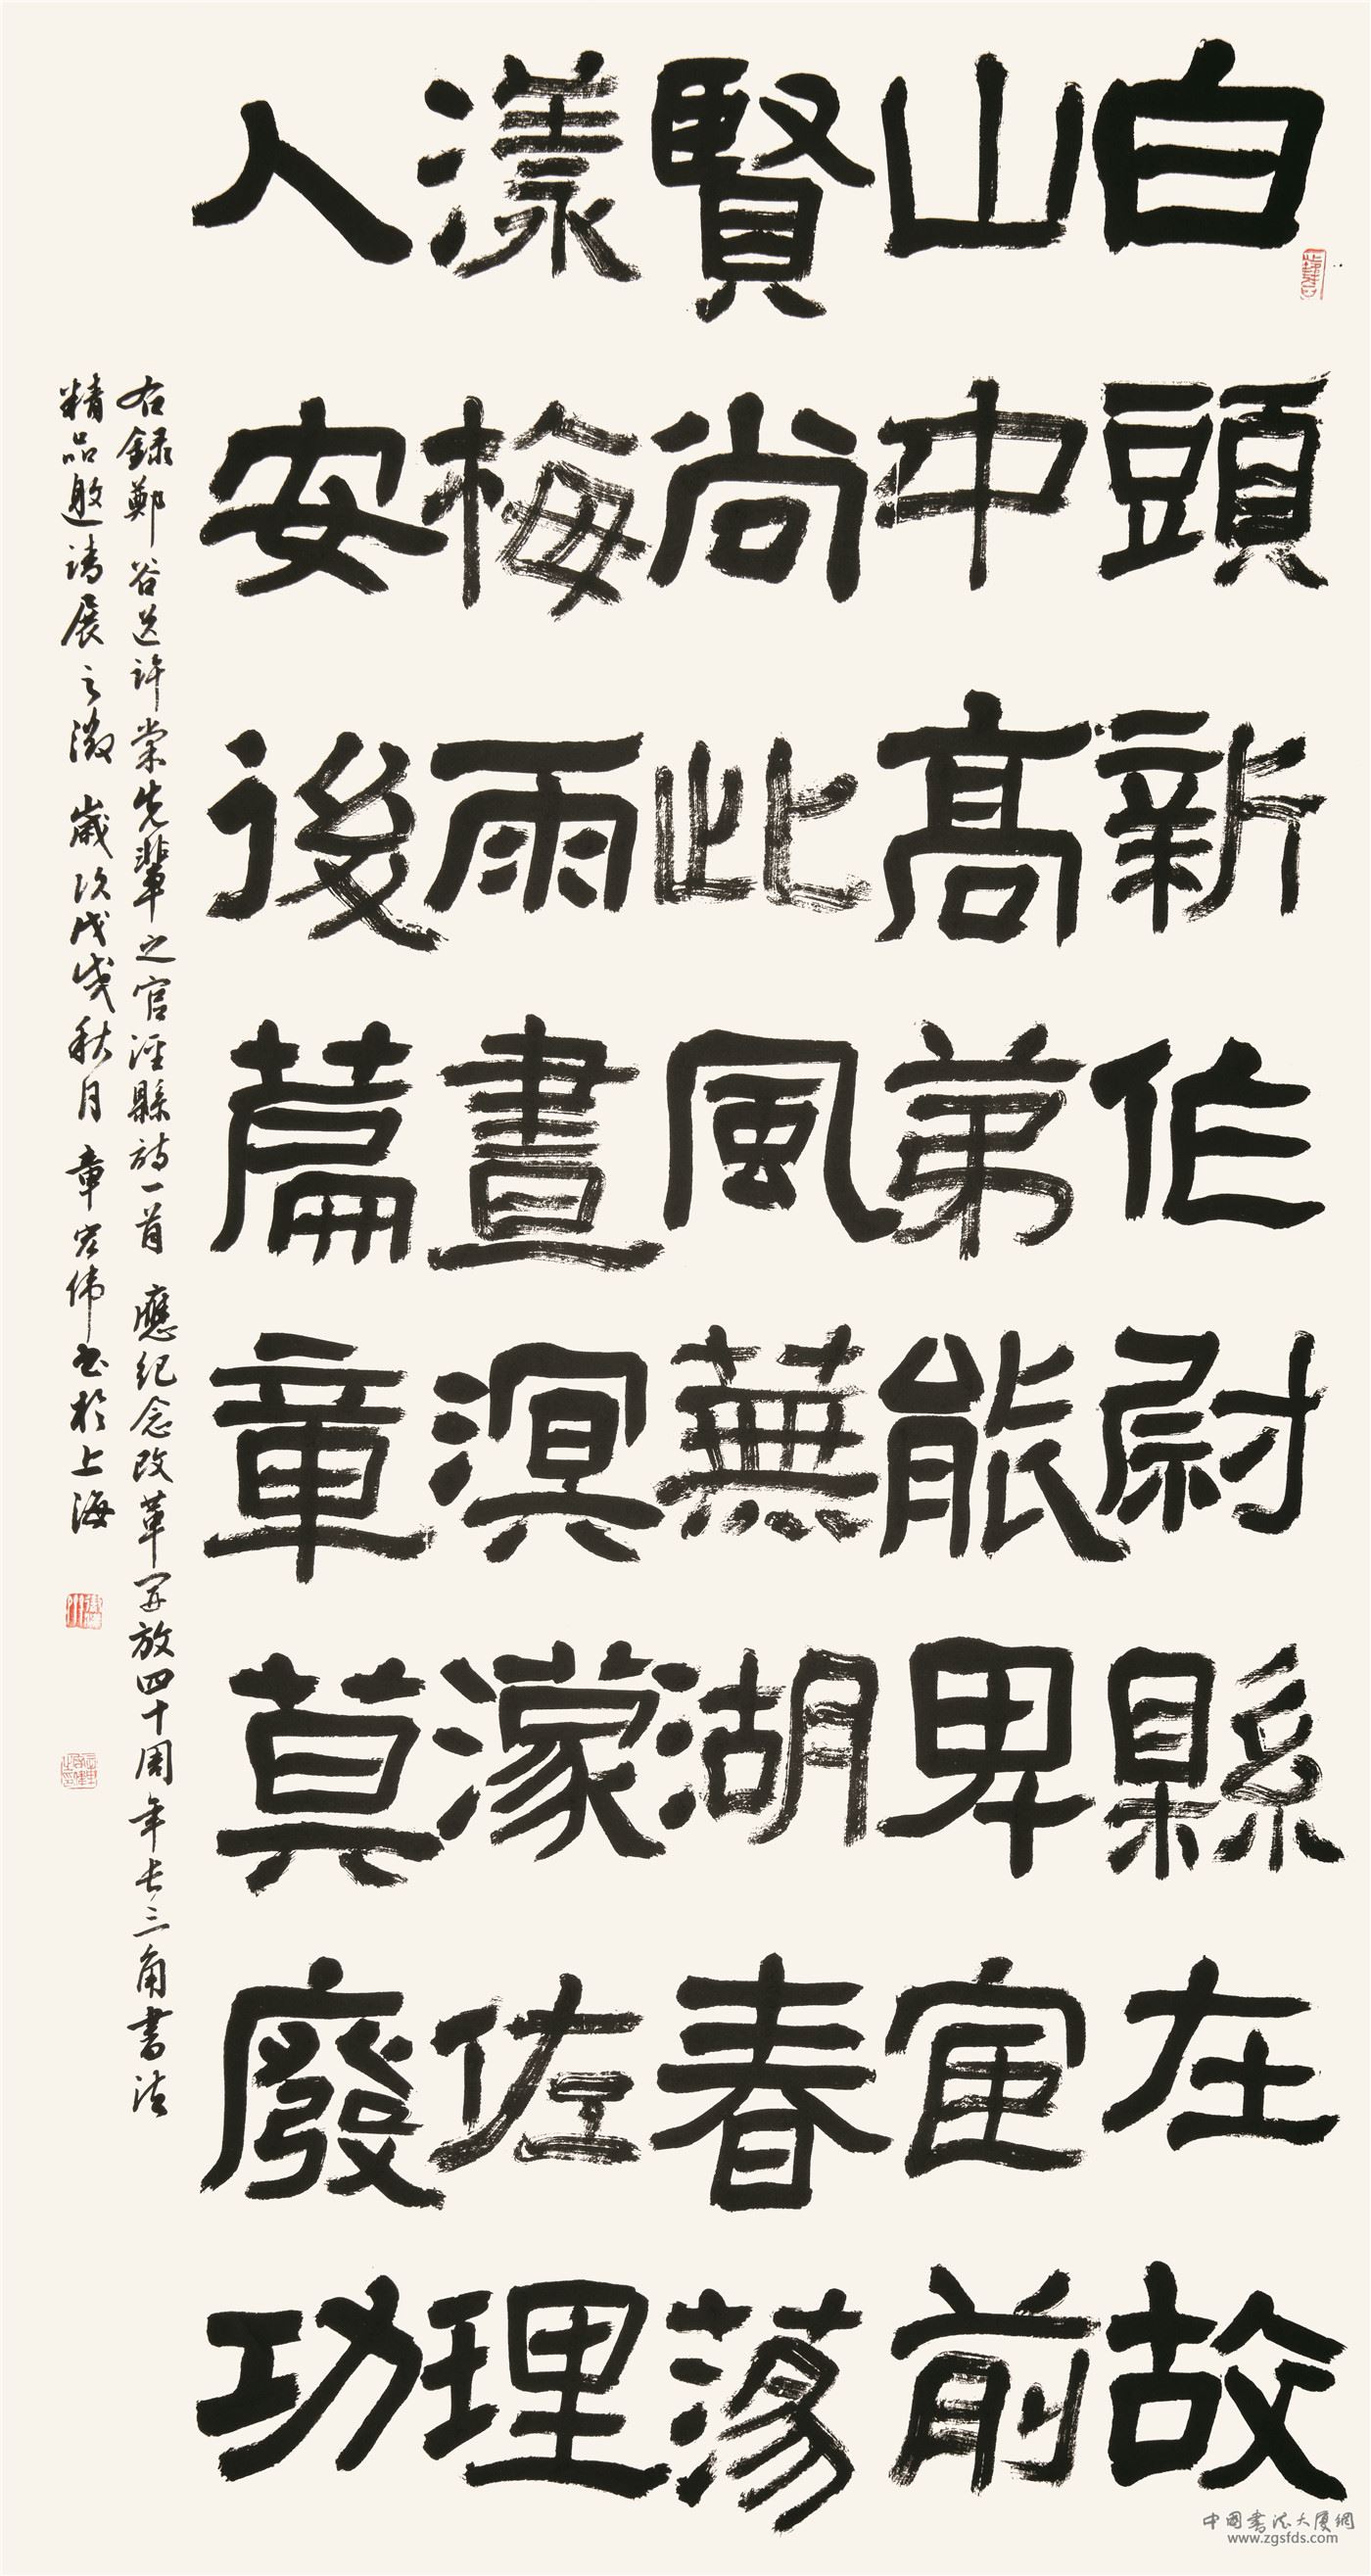 白頭新作尉縣在故
山中高弟能卑宦前
賢尚此風蕪湖春蕩
漾梅雨晝溟濛佐理
人安後篇章莫廢功
右錄鄭谷送許棠先輩之官涇縣詩一首 應紀念改革開放四十周年長三角書法
精品邀請展之徵 歲次戊戌秋月 章宏偉書於上海
中國書法大廈網
www.zgsfds.com